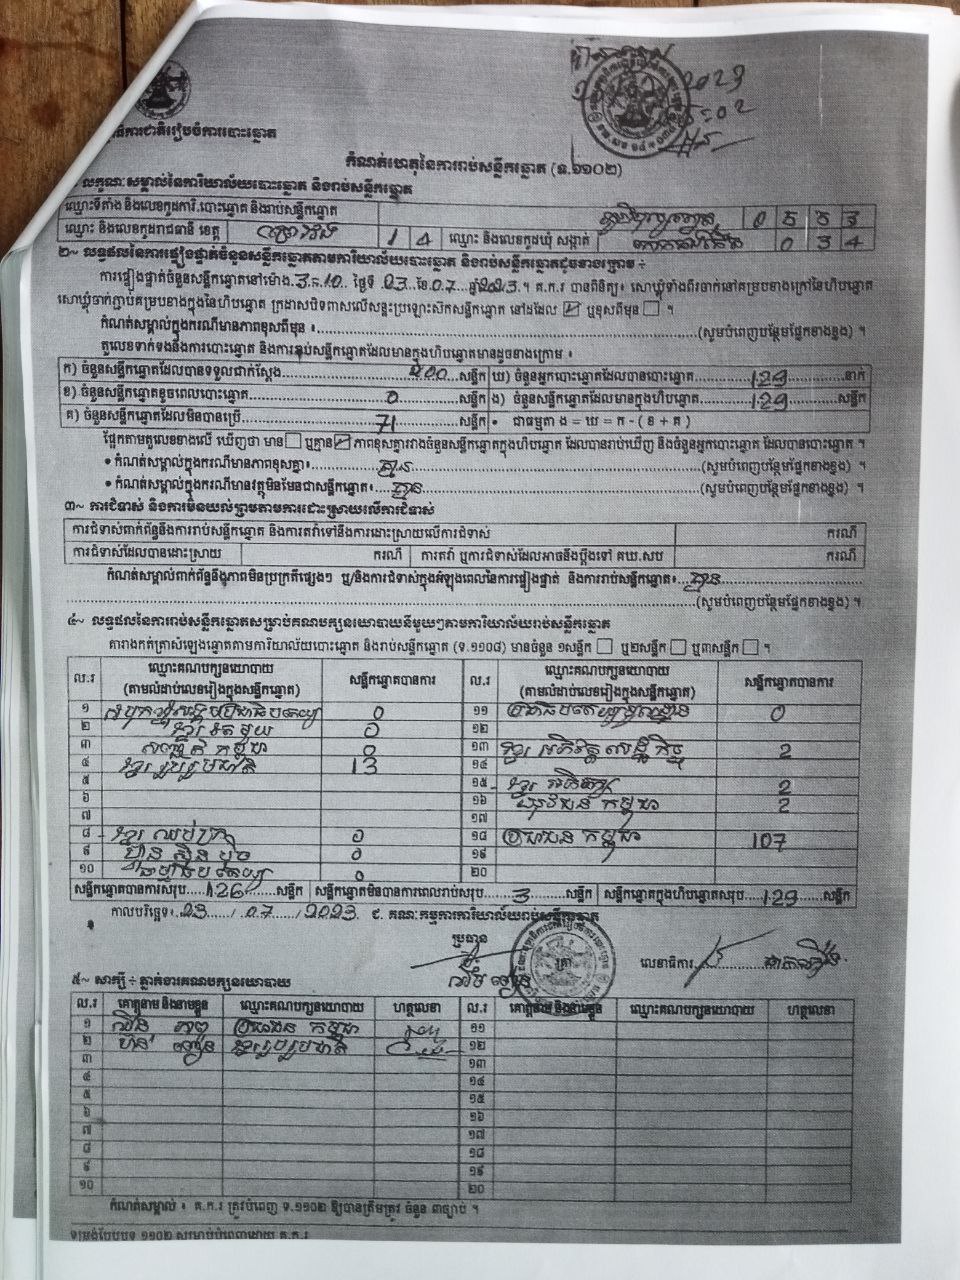 ធិការជាតិរៀបចំការបោះឆ្នោត
2023
កំណត់ហេតុនៃការរាប់សន្លឹកឆ្នោត (ទ.១១០២)
លក្ខណៈសម្គាល់នៃការិយាល័យបោះឆ្នោត និងរាប់សន្លឹកឆ្នោត
ឈ្មោះទីតាំង និងលេខកូដការិ.បោះឆ្នោត និងរាប់សន្លឹកឆ្នោត
ឈ្មោះ និងលេខកូដរាជធានី ខេត្ត 1 4 ឈ្មោះ និងលេខកូដឃុំ សង្កាត់ 0 3 4
២~ លទ្ធផលនៃការផ្ទៀងផ្ទាត់ចំនួនសន្លឹកឆ្នោតតាមការិយាល័យបោះឆ្នោត និងរាប់សន្លឹកឆ្នោតដូចខាងក្រោម ÷
ការផ្ទៀងផ្ទាត់ចំនួនសន្លឹកឆ្នោតនៅម៉ោង 3:10 ថ្ងៃទី 23 ខែ 07 ឆ្នាំ 2023។ គ.ក.រ បានពិនិត្យ៖ សោឃ្មុំទាំងពីរចាក់នៅគម្របខាងក្រៅនៃហិបឆ្នោត
សោឃ្មុំចាក់ភ្ជាប់គម្របខាងក្នុងនៃហិបឆ្នោត ក្រដាសបិទពាសលើសន្ទះប្រឡោះស៊កសន្លឹកឆ្នោត នៅដដែល ☑ ឬខុសពីមុន ☐ ។
កំណត់សម្គាល់ក្នុងករណីមានភាពខុសពីមុន ៖ (សូមបំពេញបន្ថែមផ្នែកខាងខ្នង) ។
តួលេខទាក់ទងនឹងការបោះឆ្នោត និងការរាប់សន្លឹកឆ្នោតដែលមានក្នុងហិបឆ្នោតមានដូចខាងក្រោម ៖
ក) ចំនួនសន្លឹកឆ្នោតដែលបានទទួលជាក់ស្តែង 200 សន្លឹក ឃ) ចំនួនអ្នកបោះឆ្នោតដែលបានបោះឆ្នោត 129 នាក់
ខ) ចំនួនសន្លឹកឆ្នោតខូចពេលបោះឆ្នោត 0 សន្លឹក ង) ចំនួនសន្លឹកឆ្នោតដែលមានក្នុងហិបឆ្នោត 129 សន្លឹក
គ) ចំនួនសន្លឹកឆ្នោតដែលមិនបានប្រើ 71 សន្លឹក • ជាធម្មតា ង = ឃ = ក - ( ខ + គ )
ផ្អែកតាមតួលេខខាងលើ ឃើញថា មាន ☐ ឬគ្មាន ☑ ភាពខុសគ្នារវាងចំនួនសន្លឹកឆ្នោតក្នុងហិបឆ្នោត ដែលបានរាប់ឃើញ និងចំនួនអ្នកបោះឆ្នោត ដែលបានបោះឆ្នោត ។
• កំណត់សម្គាល់ក្នុងករណីមានភាពខុសគ្នា៖ គ្មាន (សូមបំពេញបន្ថែមផ្នែកខាងខ្នង) ។
• កំណត់សម្គាល់ក្នុងករណីមានវត្ថុមិនមែនជាសន្លឹកឆ្នោត៖ គ្មាន (សូមបំពេញបន្ថែមផ្នែកខាងខ្នង) ។
៣~ ការជំទាស់ និងការមិនយល់ព្រមតាមការដោះស្រាយលើការជំទាស់
ការជំទាស់ពាក់ព័ន្ធនឹងការរាប់សន្លឹកឆ្នោត និងការតវ៉ាទៅនឹងការដោះស្រាយលើការជំទាស់ ករណី
ការជំទាស់ដែលបានដោះស្រាយ ករណី ការតវ៉ា ឬការជំទាស់ដែលអាចនឹងប្តឹងទៅ គឃ.សប ករណី
កំណត់សម្គាល់ពាក់ព័ន្ធនឹងភាពមិនប្រក្រតីផ្សេងៗ ឬ/និងការជំទាស់ក្នុងអំឡុងពេលនៃការផ្ទៀងផ្ទាត់ និងការរាប់សន្លឹកឆ្នោត៖ គ្មាន
(សូមបំពេញបន្ថែមផ្នែកខាងខ្នង) ។
៤~ លទ្ធផលនៃការរាប់សន្លឹកឆ្នោតសម្រាប់គណបក្សនយោបាយនីមួយៗតាមការិយាល័យរាប់សន្លឹកឆ្នោត
តារាងកត់ត្រាសំឡេងឆ្នោតតាមការិយាល័យបោះឆ្នោត និងរាប់សន្លឹកឆ្នោត (ទ.១១០៨) មានចំនួន ១សន្លឹក ☐ ឬ២សន្លឹក ☐ ឬ៣សន្លឹក ☐ ។
ល.រ ឈ្មោះគណបក្សនយោបាយ (តាមលំដាប់លេខរៀងក្នុងសន្លឹកឆ្នោត) សន្លឹកឆ្នោតបានការ ល.រ ឈ្មោះគណបក្សនយោបាយ (តាមលំដាប់លេខរៀងក្នុងសន្លឹកឆ្នោត) សន្លឹកឆ្នោតបានការ
១ 0 ១១ 0
២ ខ្មែរតែមួយ 0 ១២
៣ កម្ពុជា 0 ១៣ ខ្មែរអភិវឌ្ឍសេដ្ឋកិច្ច 2
៤ ខ្មែររួបរួមជាតិ 13 ១៤
៥ ១៥ ខ្មែរ 2
៦ ១៦ យុវជនកម្ពុជា 2
៧ ១៧
៨ ខ្មែរឈប់ក្រ 0 ១៨ ប្រជាជនកម្ពុជា 107
៩ ហ៊្វុនស៊ិនប៉ិច 0 ១៩
១០ 0 ២០
សន្លឹកឆ្នោតបានការសរុប 126 សន្លឹក សន្លឹកឆ្នោតមិនបានការពេលរាប់សរុប 3 សន្លឹក សន្លឹកឆ្នោតក្នុងហិបឆ្នោតសរុប 129 សន្លឹក
កាលបរិច្ឆេទ៖ 23 / 07 / 2023 ៩. គណៈកម្មការការិយាល័យរាប់សន្លឹកឆ្នោត
ប្រធាន
ត្រា លេខាធិការ
៥~ សាក្សី ÷ ភ្នាក់ងារគណបក្សនយោបាយ
ល.រ គោត្តនាម និងនាមខ្លួន ឈ្មោះគណបក្សនយោបាយ ហត្ថលេខា ល.រ គោត្តនាម និងនាមខ្លួន ឈ្មោះគណបក្សនយោបាយ ហត្ថលេខា
១ ប្រជាជនកម្ពុជា ១១
២ ខ្មែររួបរួមជាតិ ១២
៣ ១៣
៤ ១៤
៥ ១៥
៦ ១៦
៧ ១៧
៨ ១៨
៩ ១៩
១០ ២០
កំណត់សម្គាល់ ៖ គ.ក.រ ត្រូវបំពេញ ទ.១១០២ ឱ្យបានត្រឹមត្រូវ ចំនួន ៣ច្បាប់ ។
ទម្រង់បែបបទ ១១០២ សម្រាប់បំពេញដោយ គ.ក.រ